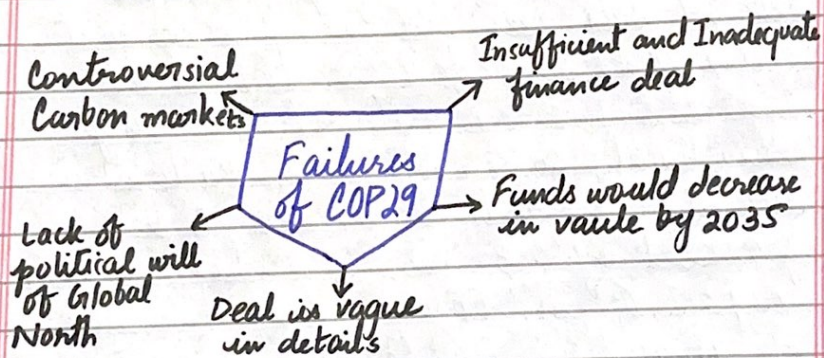 Controversial
Carbon markets
Insufficient and Inadequate
finance deal
Failures
of COP29
Funds would decrease
in vaule by 2035
Lack of
political will
of Global
North
Deal is vague
in details